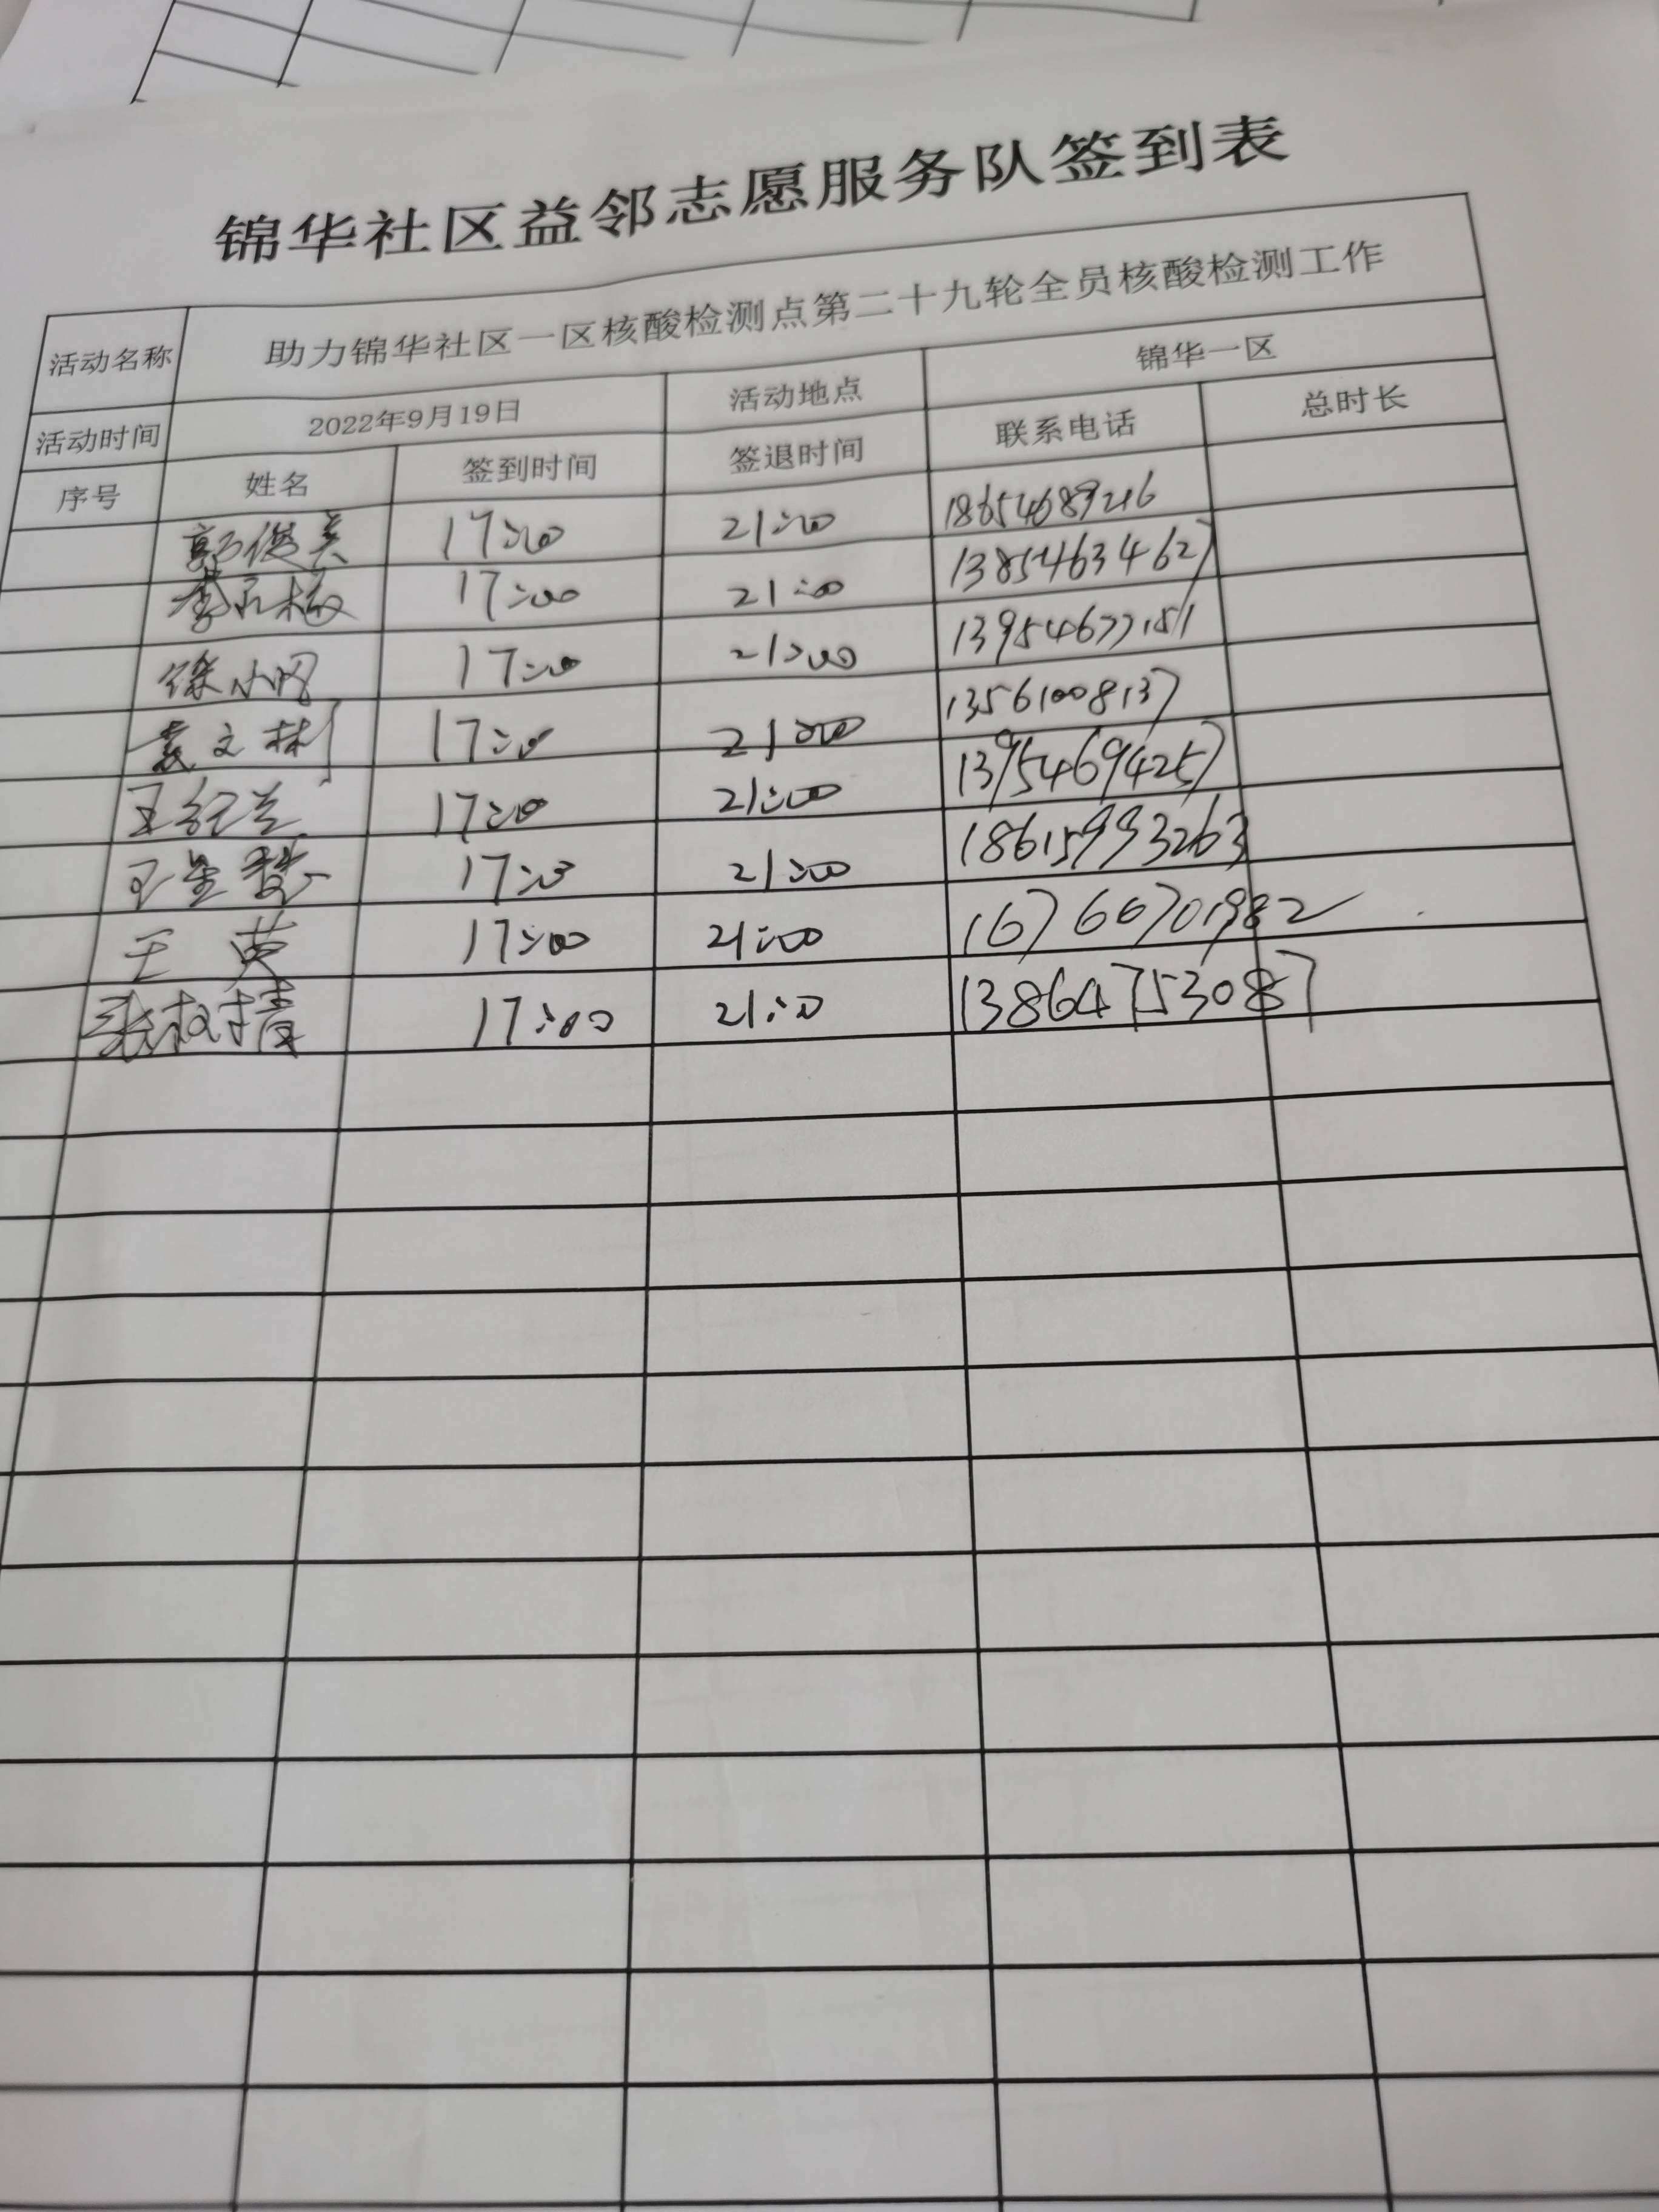 锦华社区益邻志愿服务队签到表
活动名称 助力锦华社区一区核酸检测点第二十九轮全员核酸检测工作
活动时间 2022年9月19日 活动地点 锦华一区
序号 姓名 签到时间 签退时间 联系电话 总时长
郭俊美 17:00 21:00 18654689216
17:00 21:00 13854634627
徐小 17:00 21:00 13954677151
袁文彬 17:00 21:00 13561008137
王红兰 17:00 21:00 13954694257
王 17:00 21:00 18615993263
王英 17:00 21:00 16766701982
张 17:00 21:00 13864753087